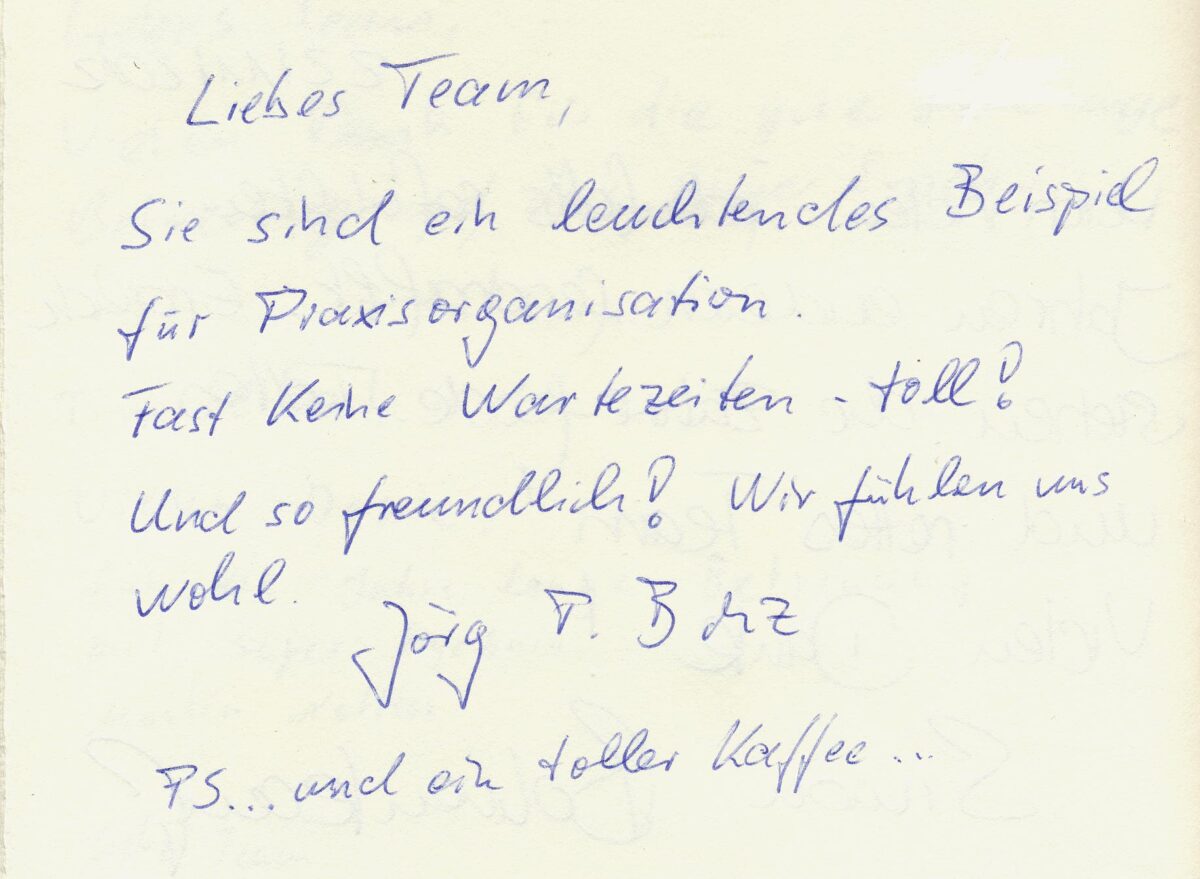 Liebes Team,
Sie sind ein leuchtendes Beispiel
für Praxisorganisation.
Fast keine Wartezeiten - toll!
Und so freundlich! Wir fühlen uns
wohl.
Jörg P.
PS... und ein toller Kaffee...